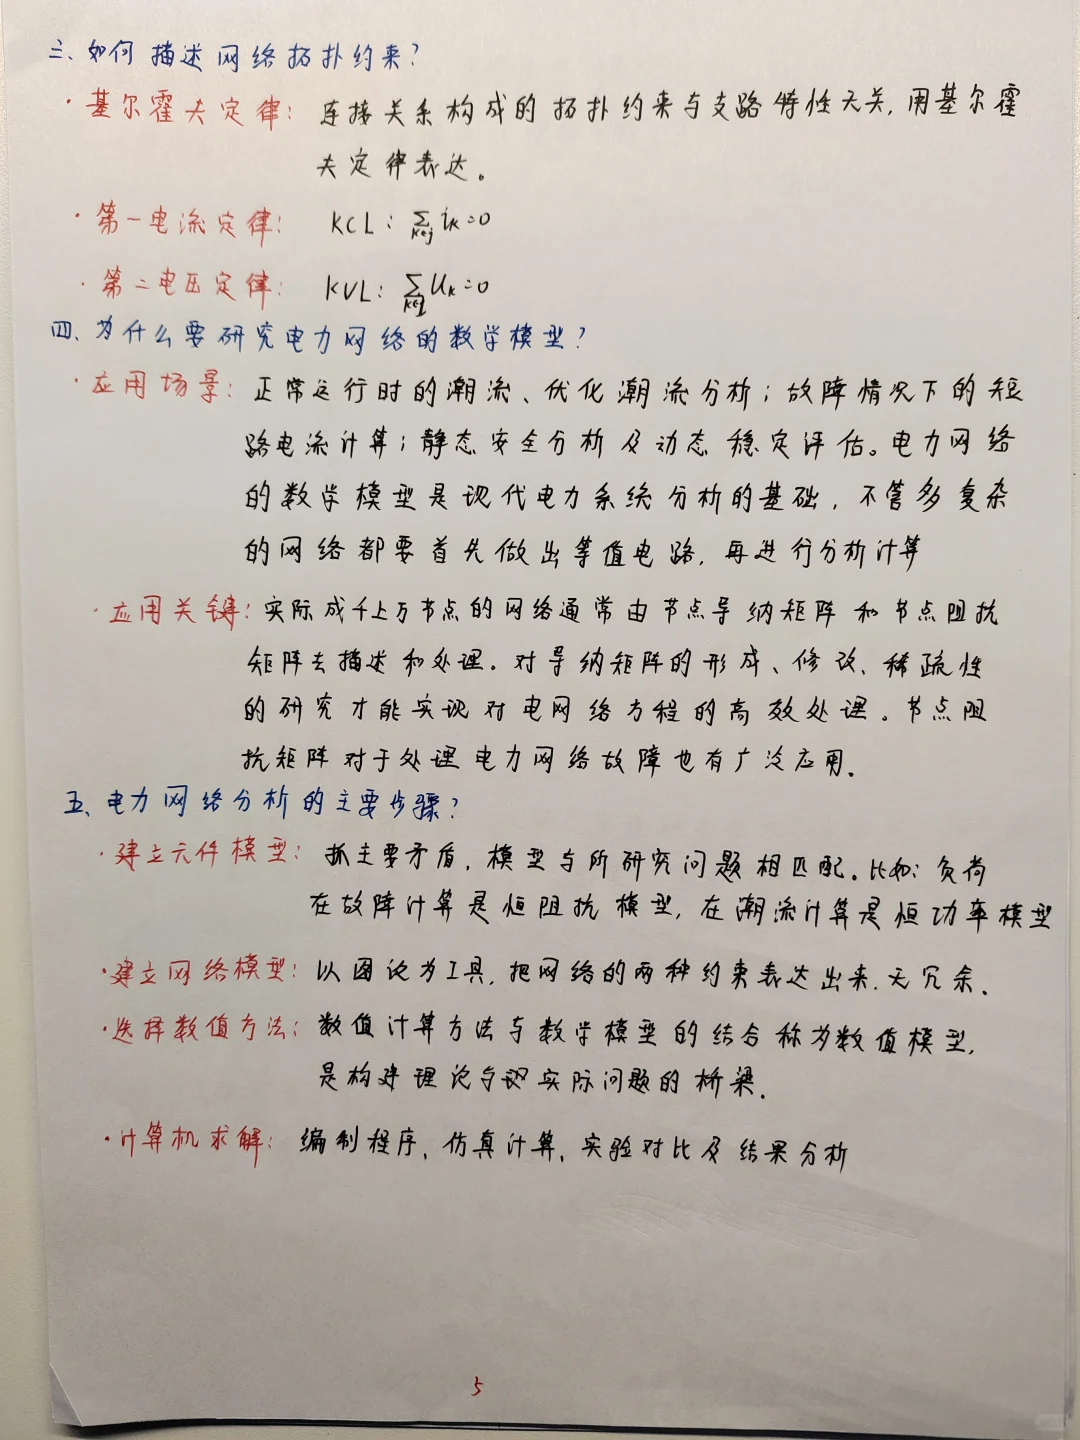 三、如何描述网络拓扑约束?
·基尔霍夫定律: 连接关系构成的拓扑约束与支路特性无关,用基尔霍
夫定律表达。
·第一电流定律: KCL: ∑_{k∈j} i_k=0
·第二电压定律: KVL: ∑_{k∈l} U_k=0
四、为什么要研究电力网络的数学模型?
·应用场景: 正常运行时的潮流、优化潮流分析;故障情况下的短
路电流计算;静态安全分析及动态稳定评估。电力网络
的数学模型是现代电力系统分析的基础,不管多复杂
的网络都要首先做出等值电路,再进行分析计算
·应用关键: 实际成千上万节点的网络通常由节点导纳矩阵和节点阻抗
矩阵去描述和处理。对导纳矩阵的形成、修改、稀疏性
的研究才能实现对电网络方程的高效处理。节点阻
抗矩阵对于处理电力网络故障也有广泛应用.
五、电力网络分析的主要步骤?
·建立元件模型: 抓主要矛盾,模型与所研究问题相匹配。比如:负荷
在故障计算是恒阻抗模型,在潮流计算是恒功率模型
·建立网络模型: 以图论为工具,把网络的两种约束表达出来.无冗余.
·选择数值方法: 数值计算方法与数学模型的结合称为数值模型,
是构建理论与现实际问题的桥梁.
·计算机求解: 编制程序,仿真计算,实验对比及结果分析
5